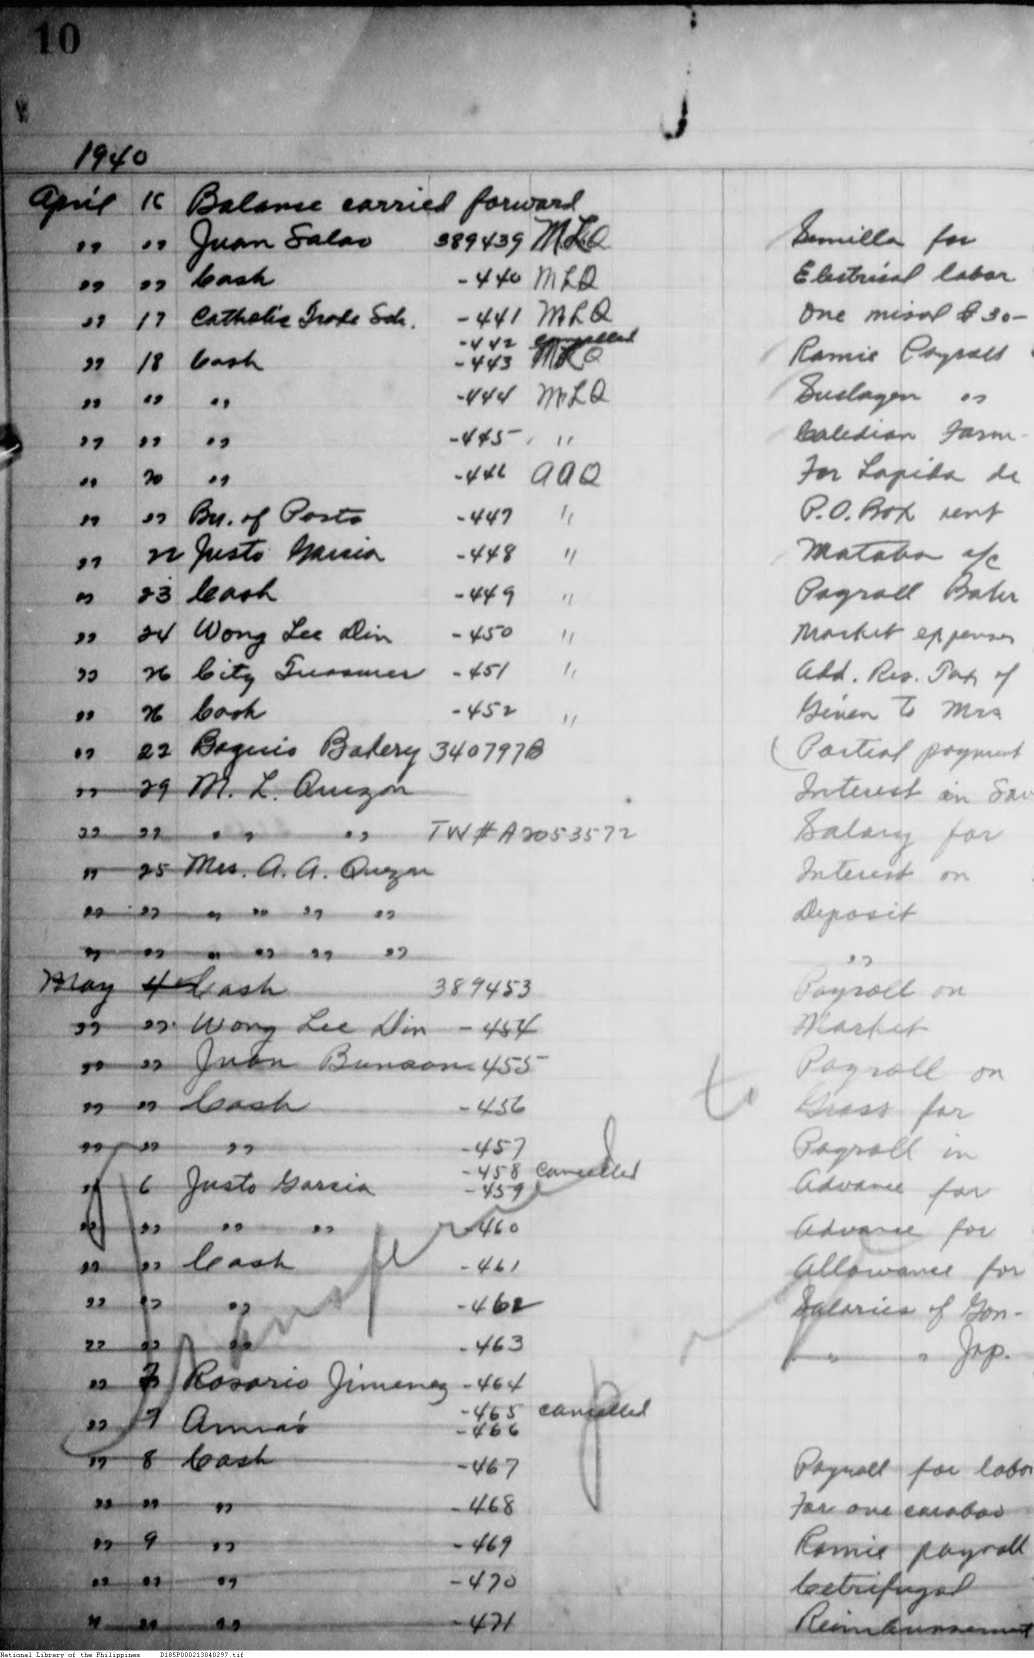 10
1940
April 16 Balance carried forward
" " Juan Salao 389439 MLQ Semilla for
" " Cash -440 MLQ Electrical labor
" 17 Catholic Trade Sch. -441 MLQ One misal $30-
-442 cancelled
" 18 Cash -443 MLQ Ramie Payroll
" " " -444 MLQ Suclayen "
" " " -445 " Caledian Farm-
" 20 " -446 AAQ For Lapida de
" " Bu. of Posts -447 " P.O. Box rent
" 22 Justo Garcia -448 " Mataba a/c
" 23 Cash -449 " Payroll Baler
" 24 Wong Lee Din -450 " Market expenses
" 26 City Treasurer -451 " Add. Res. Tax of
" 26 Cash -452 " Given to Mrs
" 22 Baguio Bakery 340797B (Partial payment
" 29 M. L. Quezon Interest in Sav
" " " " " TW#A2053572 Salary for
" 25 Mrs. A. A. Quezon Interest on
" " " " " " Deposit
" " " " " " "
May 4 Cash 389453 Payroll on
" " Wong Lee Din -454 Market
" " Juan Bunsons 455 Payroll on
" " Cash -456 Grass for
" " " -457 Payroll in
-458 cancelled
" 6 Justo Garcia -459 Advance for
" " " " -460 Advance for
" " Cash -461 Allowance for
" " " -462 Salaries of Gon-
" " " -463 " " Jap.
" 7 Rosario Jimenez -464
-465 cancelled
" 7 Anna's -466
" 8 Cash -467 Payroll for labor
" " " -468 For one carabao
" 9 " -469 Ramie payroll
" " " -470 Cetrifugal
" " " -471 Reimbursement
National Library of the Philippines D185P000213040297.tif